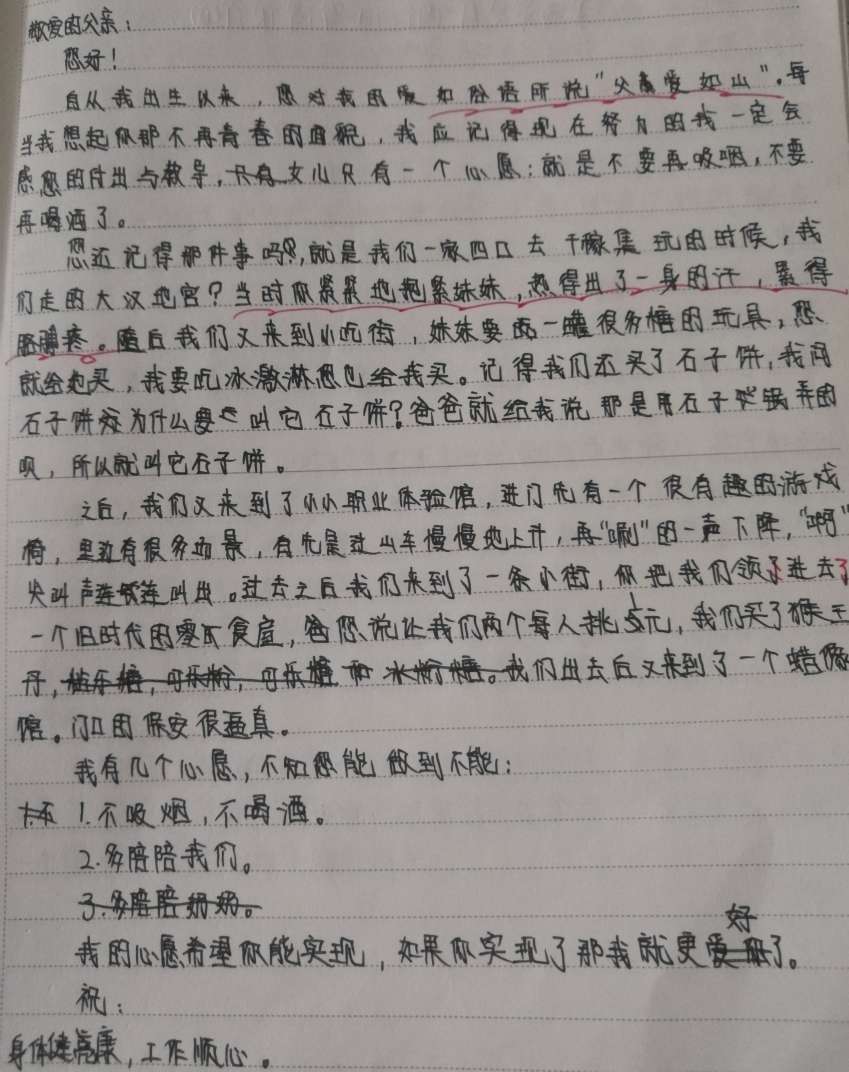 敬爱的父亲：
您好！
自从我出生以来，您对我的爱如俗语所说"父爱如山"。每
当我想起你那不再青春的面貌，我应记得现在努力的我一定会
感恩您的付出与教导，女儿只有一个心愿：就是不要再吸烟，不要
再喝酒了。
您还记得那件事吗？就是我们一家四口去千稼集玩的时候，我
们走的大汉地宫？当时你紧紧地抱紧妹妹，热得出了一身的汗，累得
胳膊疼。随后我们又来到小吃街，妹妹要一罐很多糖的玩具，您
就给她买，我要吃冰激淋您也给我买。记得我们还买了石子饼，我问
石子饼为什么要叫它石子饼？爸爸就给我说那是用石子烂锅弄的
呗，所以就叫它石子饼。
之后，我们又来到了小小职业体验馆，进门先有一个很有趣的游戏
椅，里边有很多场景，首先是过山车慢慢地上升，再"唰"的一声下降，"啊"
尖叫声连连叫出。过去之后我们来到了一条小街，你把我们领进去了
一个旧时代的零食屋，爸您说让我们两个每人挑5元，我们买了猴王
丹，可乐糖和冰粉糖。我们出去后又来到了一个蜡像
馆。门口的保安很逼真。
我有几个心愿，不知您能做到不能：
1.不吸烟，不喝酒。
2.多陪陪我们。
3.多陪陪奶奶。
我的心愿希望你能实现，如果你实现了那我就更好了。
祝：
身体健康，工作顺心。